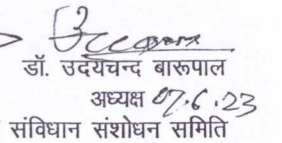 डॉ. उदयचन्द बारूपाल
अध्यक्ष 07.6.23
संविधान संशोधन समिति